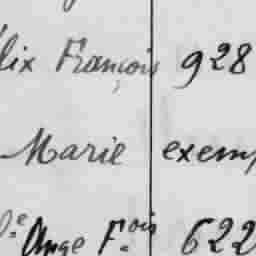 lix François 928
Marie exem
e Ange F.ois 622